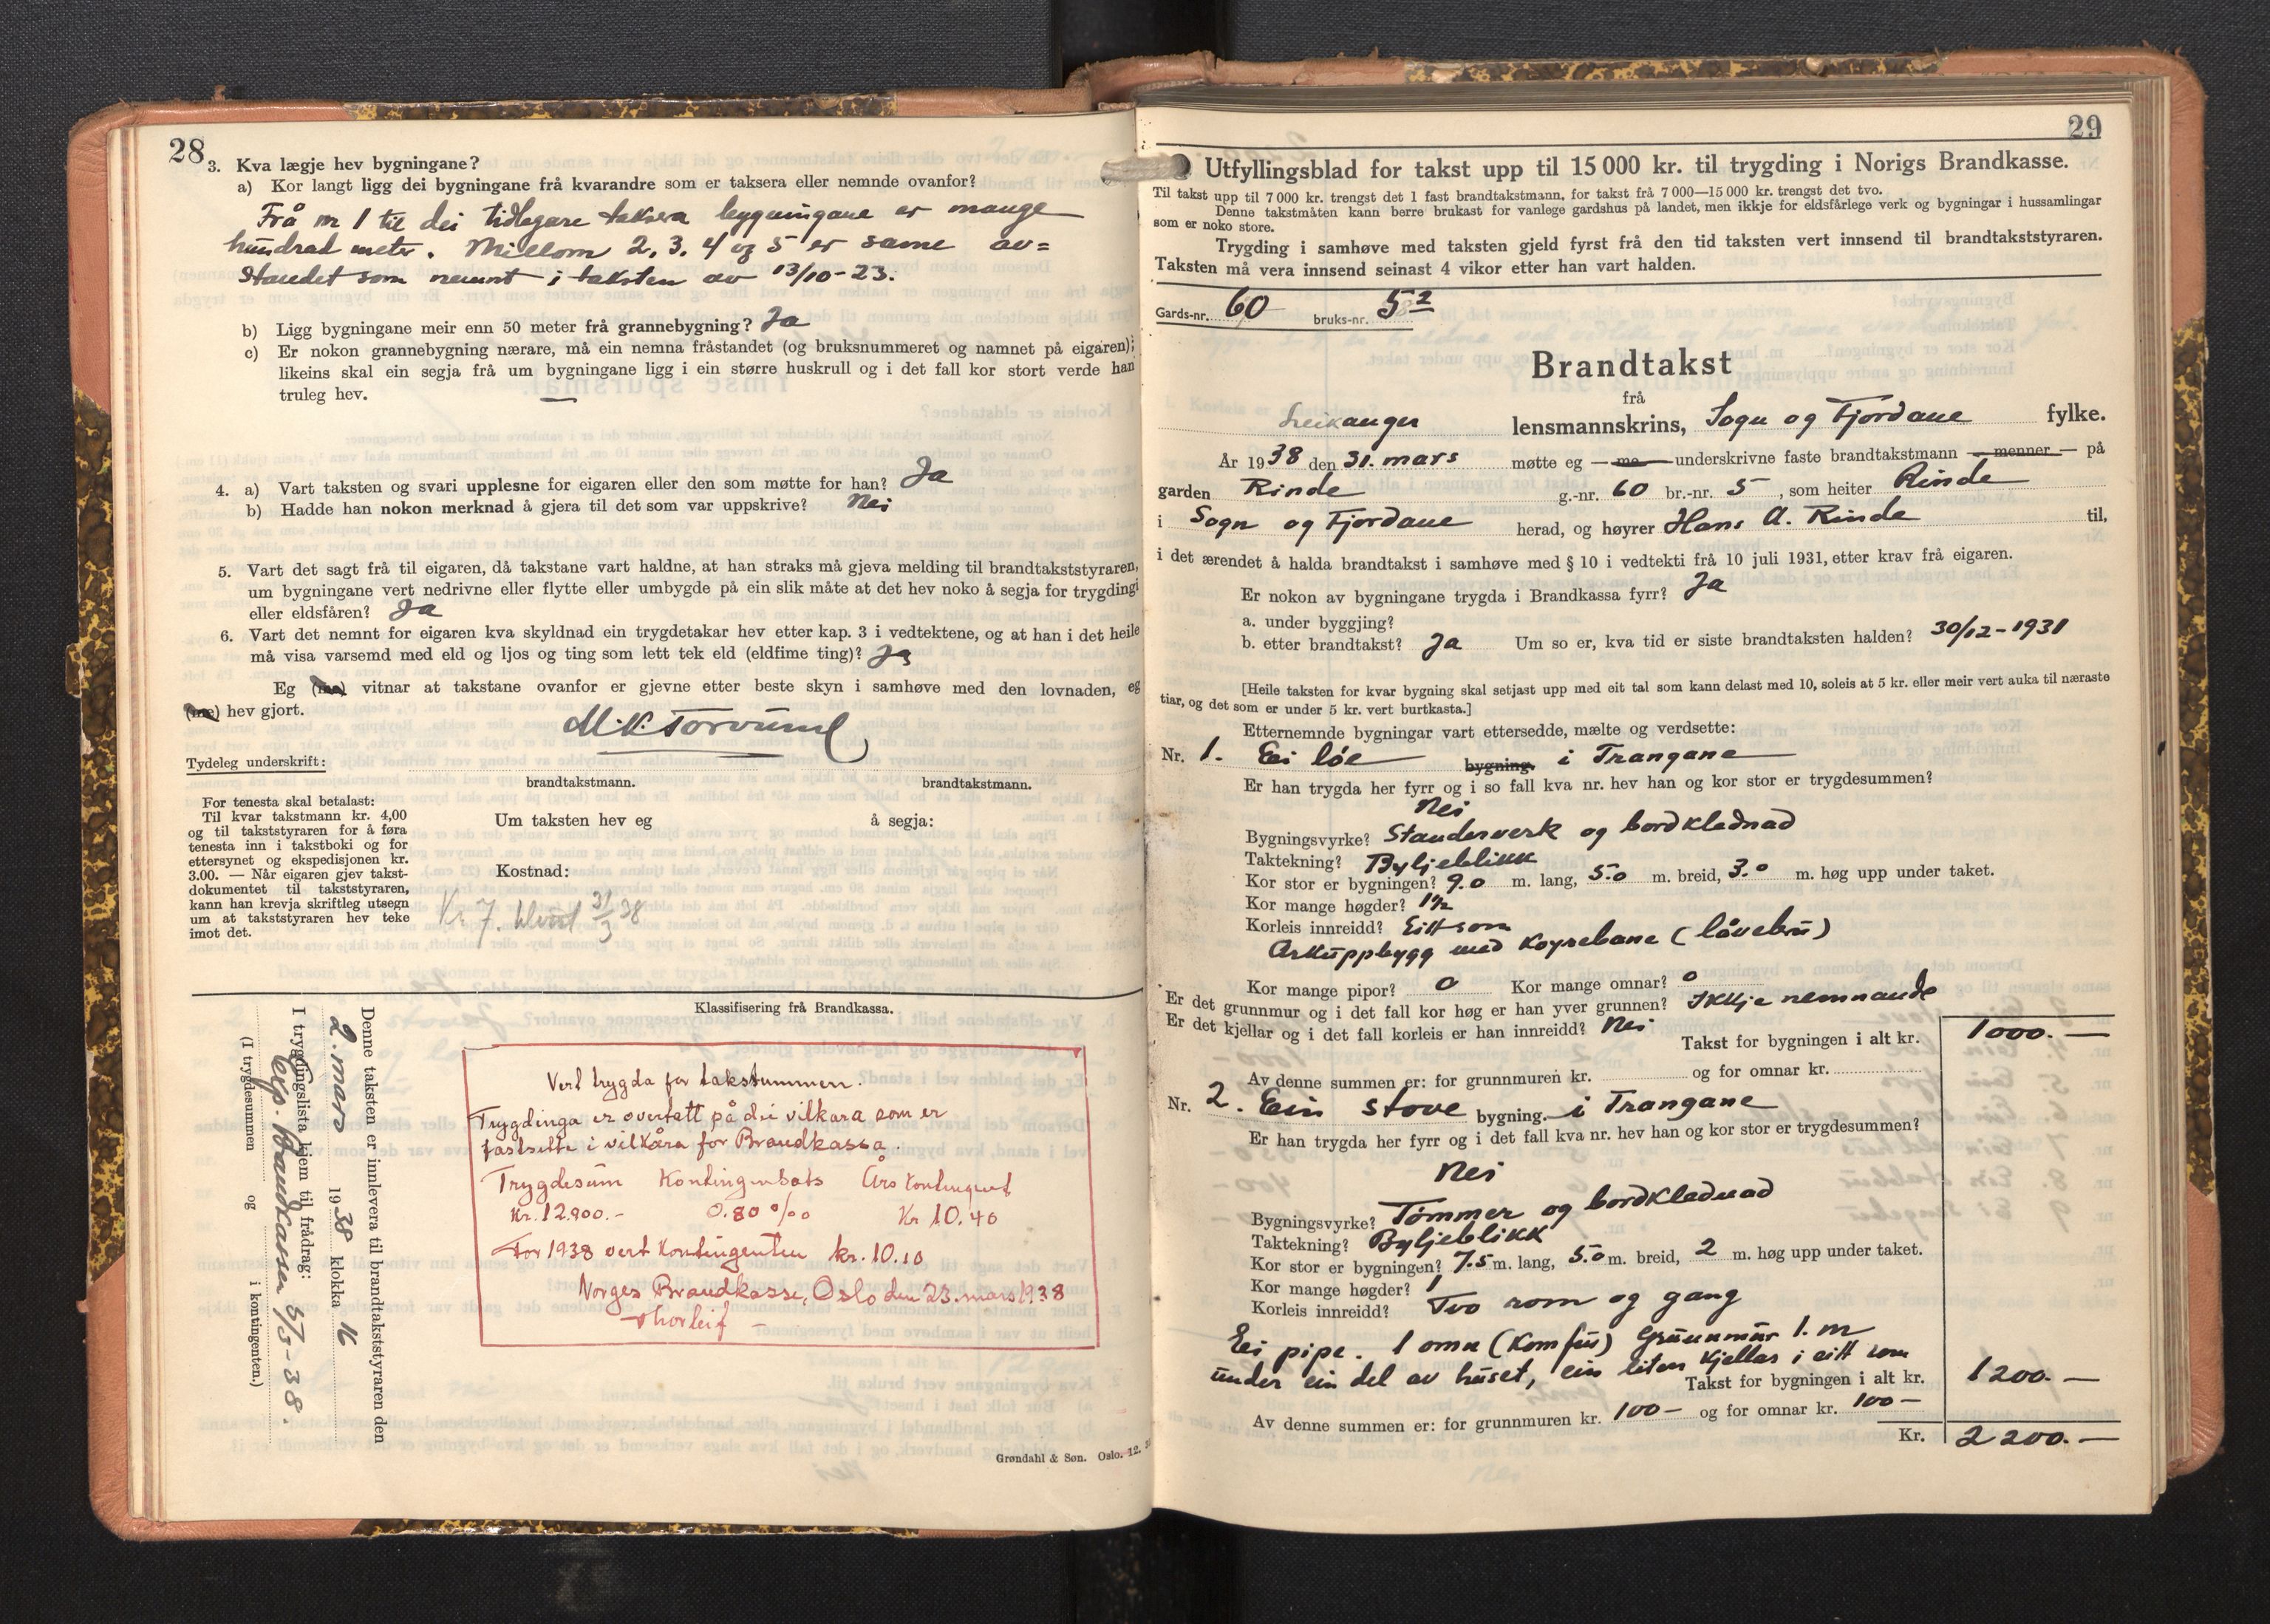 28
3. Kva lægje hev bygningane?
a) Kor langt ligg dei bygningane frå kvarandre som er taksera eller nemnde ovanfor?
Frå nr 1 til dei tidlegare taksera bygningane er mange
hundrad meter. Millom 2, 3, 4 og 5 er same av=
standet som nemnt i taksten av 13/10-23.
b) Ligg bygningane meir enn 50 meter frå grannebygning? Ja
c) Er nokon grannebygning nærare, må ein nemna fråstandet (og bruksnummeret og namnet på eigaren);
likeins skal ein segja frå um bygningane ligg i ein større huskrull og i det fall kor stort verde han
truleg hev. —
4. a) Vart taksten og svari upplesne for eigaren eller den som møtte for han? Ja
b) Hadde han nokon merknad å gjera til det som var uppskrive? Nei
5. Vart det sagt frå til eigaren, då takstane vart haldne, at han straks må gjeva melding til brandtakststyraren,
um bygningane vert nedrivne eller flytte eller umbygde på ein slik måte at det hev noko å segja for trygdingi
eller eldsfåren? Ja
6. Vart det nemnt for eigaren kva skyldnad ein trygdetakar hev etter kap. 3 i vedtektene, og at han i det heile
må visa varsemd med eld og ljos og ting som lett tek eld (eldfime ting)? Ja
Eg (me) vitnar at takstane ovanfor er gjevne etter beste skyn i samhøve med den lovnaden, eg
(me) hev gjort.
M. K. Torvund
Tydeleg underskrift:
brandtakstmann. brandtakstmann.
For tenesta skal betalast:
Til kvar takstmann kr. 4,00
og til takststyraren for å føra
tenesta inn i takstboki og for
ettersynet og ekspedisjonen kr.
3.00. — Når eigaren gjev takst-
dokumentet til takststyraren,
kann han krevja skriftleg utsegn
um at takststyraren hev teke
imot det.
Um taksten hev eg å segja:
Kostnad:
Kr 7. 31/3 38
Klassifisering frå Brandkassa.
Denne taksten er innlevera til brandtakststyraren den
2. mars 1938 klokka 16
I trygdingslista kjem til frådrag:
exp. Brandkassen 5/3-38.
(I trygdesummen og i kontingenten.)
Vert trygda for takstummen.
Trygdinga er overtatt på dei vilkåra som er
fastsette i vilkåra for Brandkassa.
Trygdesum Kontingentsats Års kontingent
Kr. 12.900.- 0.80 %o Kr 10.40
For 1938 vert kontingenten kr. 10.10
Norges Brandkasse, Oslo den 23. mars 1938
Thorleif
Grøndahl & Søn. Oslo. 12.
29
Utfyllingsblad for takst upp til 15 000 kr. til trygding i Norigs Brandkasse.
Til takst upp til 7 000 kr. trengst det 1 fast brandtakstmann, for takst frå 7 000—15 000 kr. trengst det tvo.
Denne takstmåten kann berre brukast for vanlege gardshus på landet, men ikkje for eldsfårlege verk og bygningar i hussamlingar
som er noko store.
Trygding i samhøve med taksten gjeld fyrst frå den tid taksten vert innsend til brandtakststyraren.
Taksten må vera innsend seinast 4 vikor etter han vart halden.
Gards-nr. 60 bruks-nr. 5 2
Brandtakst
frå
Leikanger lensmannskrins, Sogn og Fjordane fylke.
År 1938 den 31. mars møtte eg — me — underskrivne faste brandtakstmann — menner — på
garden Rinde g.-nr. 60 br.-nr. 5, som heiter Rinde
i Sogn og Fjordane herad, og høyrer Hans A. Rinde til,
i det ærendet å halda brandtakst i samhøve med § 10 i vedtekti frå 10 juli 1931, etter krav frå eigaren.
Er nokon av bygningane trygda i Brandkassa fyrr? Ja
a. under byggjing?
b. etter brandtakst? Ja Um so er, kva tid er siste brandtaksten halden? 30/12-1931
[Heile taksten for kvar bygning skal setjast upp med eit tal som kann delast med 10, soleis at 5 kr. eller meir vert auka til næraste
tiar, og det som er under 5 kr. vert burtkasta.]
Etternemnde bygningar vart ettersedde, mælte og verdsette:
Nr. 1. Ei løe bygning. i Trangane
Er han trygda her fyrr og i so fall kva nr. hev han og kor stor er trygdesummen?
Nei
Bygningsvyrke? Standerverk og bordklednad
Taktekning? Byljeblikk
Kor stor er bygningen? 9.0 m. lang, 5.0 m. breid, 3.0 m. høg upp under taket.
Kor mange høgder? 1½
Korleis innreidd? Eitt rom
Arkuppbygg med køyrebane (låvebru)
Kor mange pipor? 0 Kor mange omnar? 0
Er det grunnmur og i det fall kor høg er han yver grunnen? Ikkje nemnande
Er det kjellar og i det fall korleis er han innreidd? Nei
Takst for bygningen i alt kr. 1000.—
Av denne summen er: for grunnmuren kr. og for omnar kr.
Nr. 2. Ein stove bygning. i Trangane
Er han trygda her fyrr og i det fall kva nr. hev han og kor stor er trygdesummen?
Nei
Bygningsvyrke? Tømmer og bordklednad
Taktekning? Byljeblikk
Kor stor er bygningen? 7.5 m. lang, 5.0 m. breid, 2 m. høg upp under taket.
Kor mange høgder? 1
Korleis innreidd? Tvo rom og gang
Ei pipe. 1 omn (Komfur) Grunnmur 1. m
under ein del av huset, ein liten kjellar i eitt rom
Takst for bygningen i alt kr. 1200.—
Av denne summen er: for grunnmuren kr. 100— og for omnar kr. 100—
Kr. 2200.—